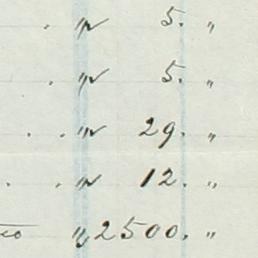 . " 5. "
. " 5. "
. . " 29. "
. . " 12. "
" 2500. "